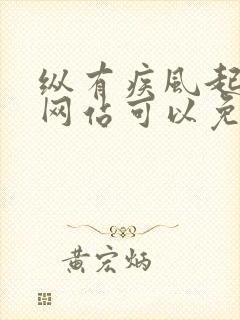 纵有疾风起
网站可以免
黄宏炳